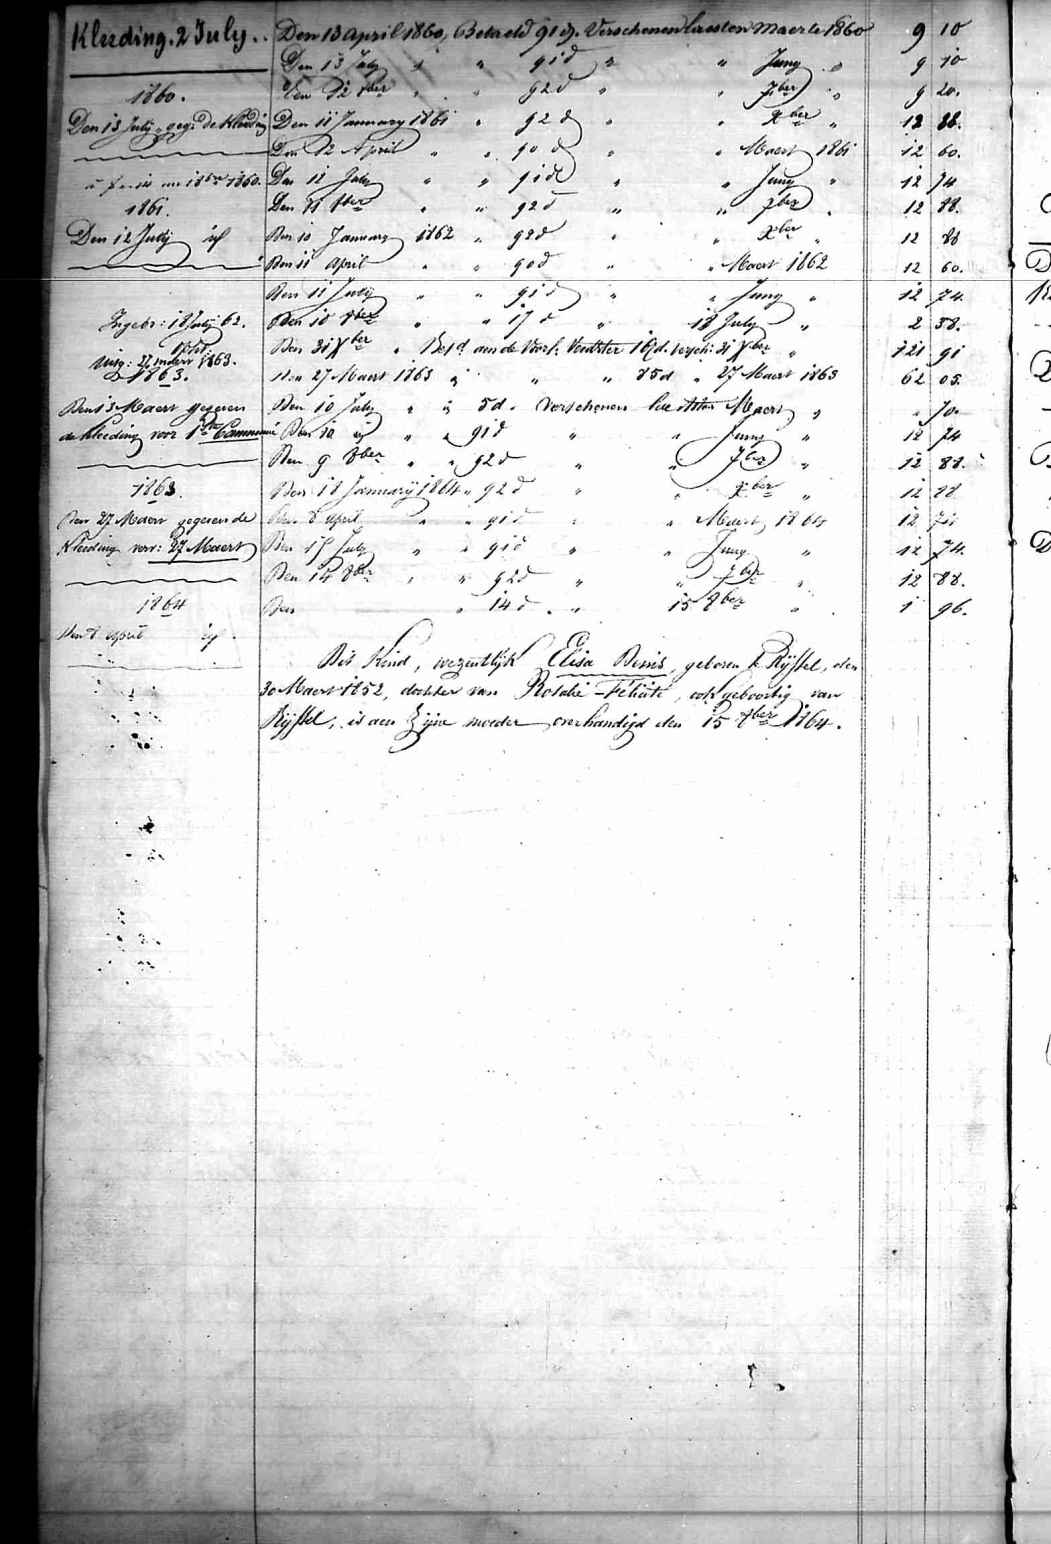 Kleeding. 2 July.. Den 13 April 1860, Betaeld 91 d. Verschenen laesten Maerte 1860 9 10
Den 13 July " " 91 d " " Juny " 9 10
1860. Den 12 8ber " " 92 d " " 7ber " 9 20.
Den 13 July geg: de Kleeding Den 11 January 1861 " 92 d " " Xber " 12 88.
Den 12 April " " 90 d " " Maert 1861 12 60.
18ber 1860. Den 12 July " " 91 d " " Juny " 12 74
1861. Den 11 8ber " " 92 d " " 7ber " 12 88.
Den 12 July id Den 10 January 1862 " 92 d " " Xber " 12 88
Den 11 April " " 90 d " " Maert 1862 12 60.
Den 11 July " " 91 d " " Juny " 12 74.
Ingebr: 18 July 62. Den 10 8ber " " 17 d " 18 July " 2 38.
Uitg: 27 maert 1863. Den 31 Xber " Bet d aen de Voorl: Verschr: 31 Xber " 121 91
1863. Den 27 Maert 1863 " " " 85 d " 27 Maert 1863 62 05.
Den 13 Maert gegeven Den 10 July " " 5 d. Verschenen laesten Maert " " 70.
de Kleeding voor 1ste Communie Den 10 " " 91 d " " Juny " 12 74
Den 9 8ber " " 92 d " " 7ber " 12 88.
1863. Den 18 January 1864 " 92 d " " Xber " 12 88
Den 27 Maert gegeven de Den 8 April " " 91 d " " Maert 1864 12 74
Kleeding verv: 27 Maert Den 15 July " " 91 d " " Juny " 12 74.
Den 14 8ber " " 92 d " " 7ber " 12 88.
1864 Den " 14 d " " 15 8ber " 1 96.
Den 8 April id
Dit Kind, wezentlijk Elisa Denis, geboren te Ryssel, den
30 Maert 1852, dochter van Rosalie-Félicité, ook geboortig van
Ryssel, is aen zijne moeder overhandigd den 15 8ber 1864.